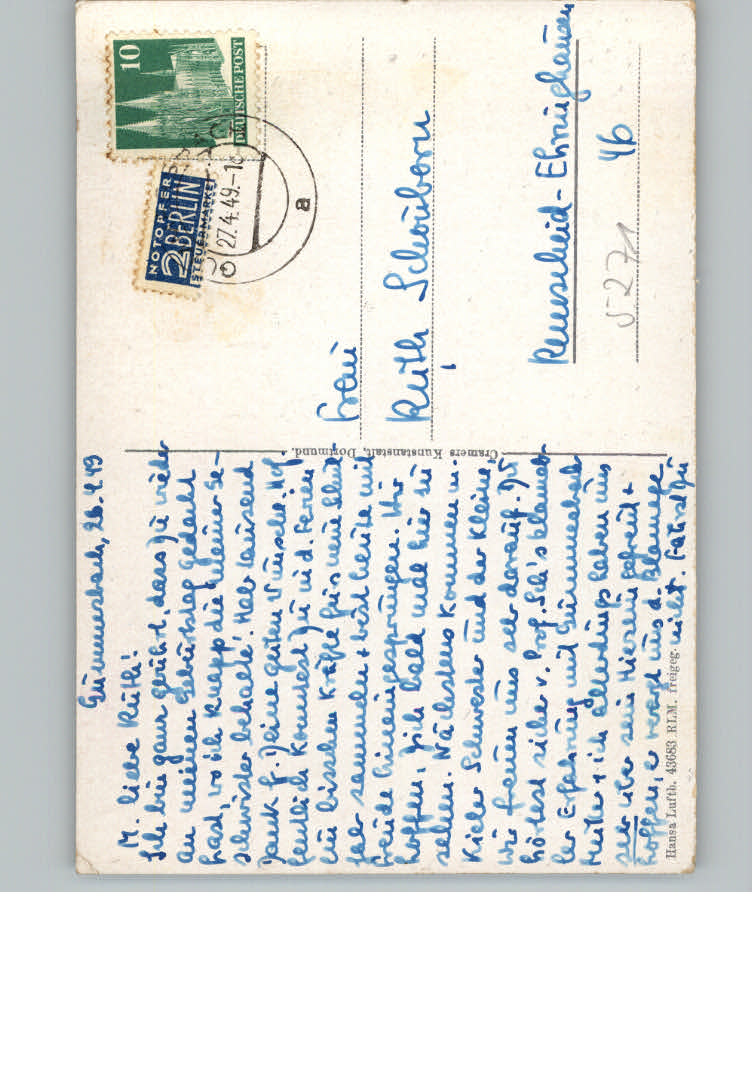 Gummersbach, 26.4.49
M. liebe Ruth!
Ich bin ganz gerührt, dass Du wieder
an meinen Geburtstag gedacht
hast, wo ich knapp die meiner Ge-
schwister behalte! Hab tausend
Dank f. Deine guten Wünsche. Hof-
fentlich konntest Du i. d. Ferien
ein bisschen Kräfte fürs neue Schul-
jahr sammeln + bist heute mit
Freude hineingesprungen. Wir
hoffen, Dich bald mal hier zu
sehen. Nächstens kommen m.
Kieler Schwester und der Kleine,
wir freuen uns sehr darauf. Du
hörtest sicher v. Prof. Sch's
ler Erfahrung mit Gummersbach
Mutter + ich allerdings haben uns
sehr über sein Hiersein gefreut +
hoffen, er nicht.
Cramers Kunstanstalt, Dortmund.
Hansa Luftb. 43683 RLM. freigeg.
10
DEUTSCHE POST
NOTOPFER
2 BERLIN
STEUERMARKE
27.4.49.-1
a
Frau
Ruth Schönborn
Remscheid-Ehringhausen
46
5271